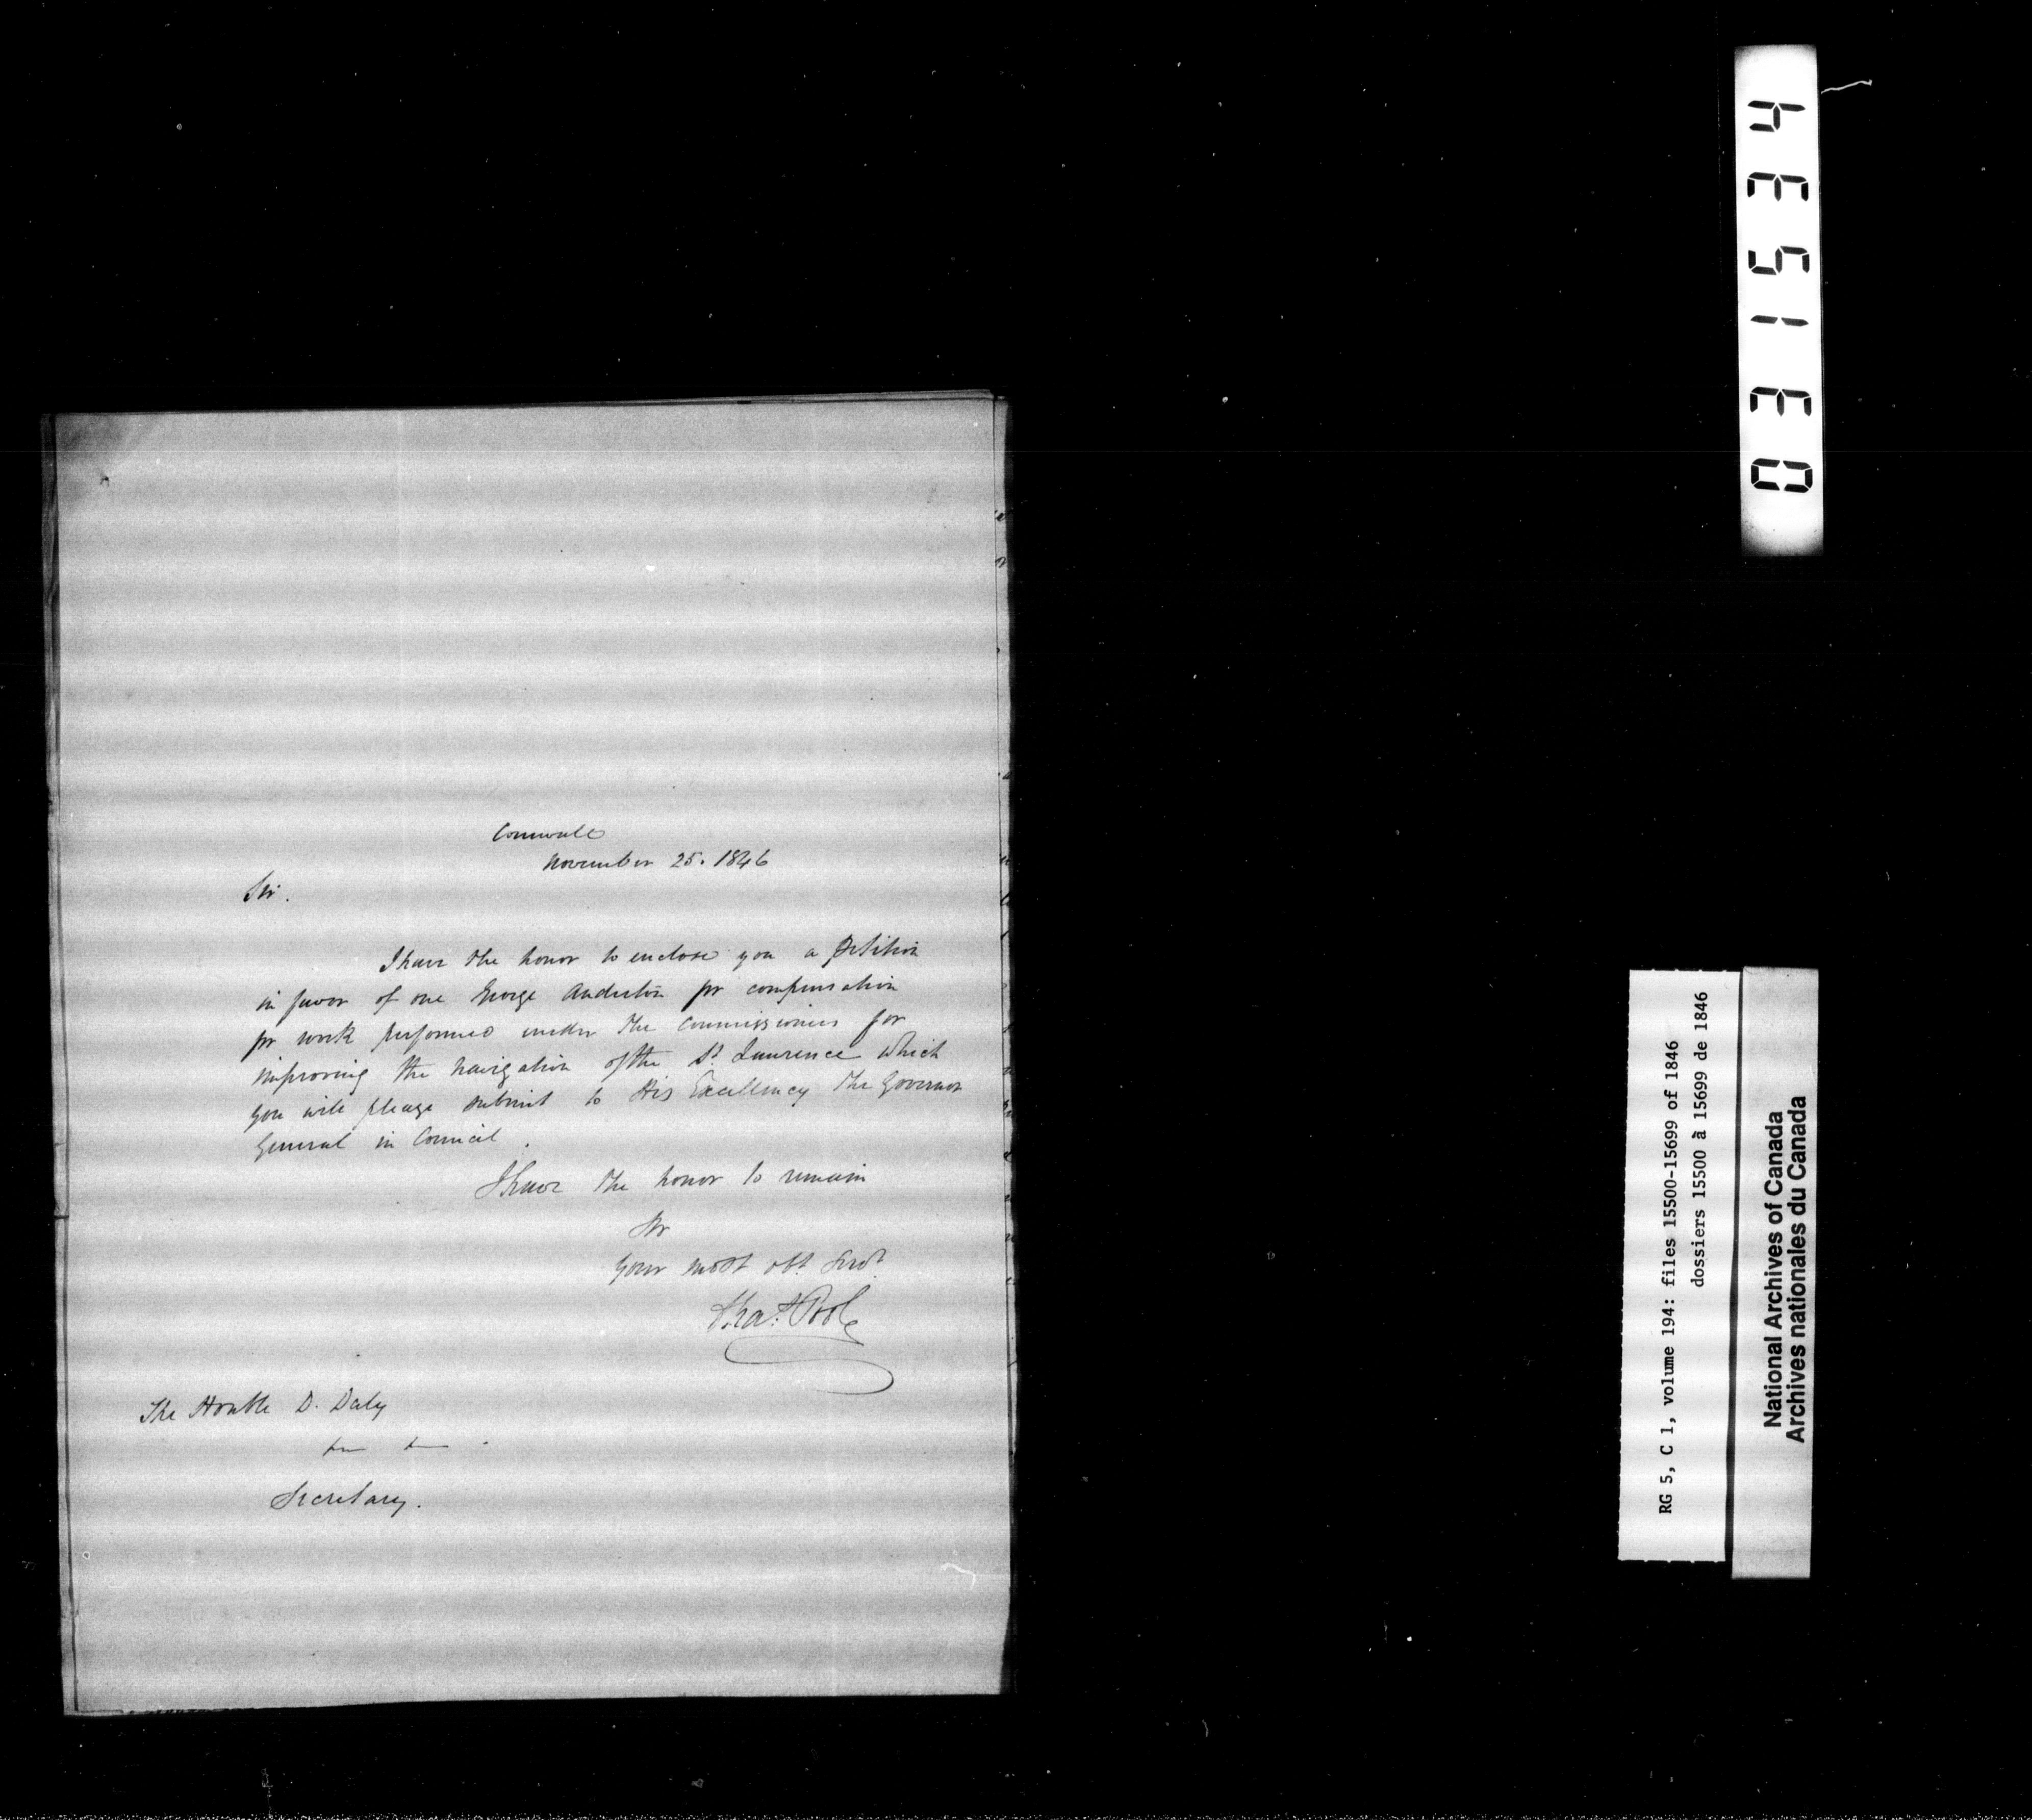 Cornwall
November 25. 1846
Sir.
I have the honor to enclose you a Petition
in favor of one George Anderton for compensation
for work performed under the Commissioners for
improving the navigation of the St. Lawrence which
you will please submit to His Excellency the Governor
General in Council.
I have the honor to remain
Sir
Your most obt. Servt.
Poole
The Honble D. Daly
Secretary.
034153
RG 5, C 1, volume 194: files 15500-15699 of 1846
dossiers 15500 à 15699 de 1846
National Archives of Canada
Archives nationales du Canada